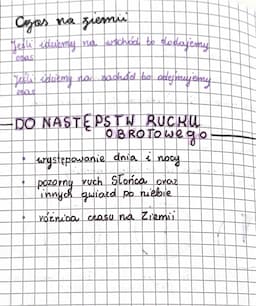 Czas na ziemi
Jeśli idziemy na wschód to dodajemy
czas
Jeśli idziemy na zachód to odejmujemy
czas
DO NASTĘPSTW RUCHU
OBROTOWEGO
• występowanie dnia i nocy
• pozorny ruch Słońca oraz
innych gwiazd po niebie
• różnica czasu na Ziemii